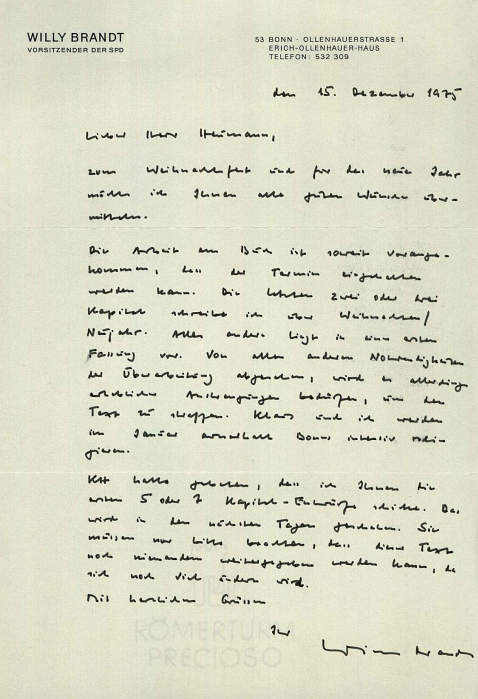 WILLY BRANDT
VORSITZENDER DER SPD
53 BONN · OLLENHAUERSTRASSE 1
ERICH-OLLENHAUER-HAUS
TELEFON: 532 309
den 15. Dezember 1975
Lieber Herr Heimann,
zum Weihnachtsfest und für das neue Jahr
möchte ich Ihnen alle guten Wünsche über-
mitteln.
Die Arbeit am Buch ist soweit vorange-
kommen, dass der Termin eingehalten
werden kann. Die letzten zwei oder drei
Kapitel schreibe ich über Weihnachten/
Neujahr. Alles andere liegt in einer ersten
Fassung vor. Von allen anderen Notwendigkeiten
der Überarbeitung abgesehen, wird es allerdings
erheblicher Anstrengungen bedürfen, um den
Text zu straffen. Klaus und ich werden
im Januar ausserhalb Bonns intensiv redi-
gieren.
KH hatte gebeten, dass ich Ihnen die
ersten 5 oder 7 Kapitel-Entwürfe schicke. Das
wird in den nächsten Tagen geschehen. Sie
müssen nur bitte beachten, dass dieser Text
noch niemandem weitergegeben werden kann, da
sich noch viel ändern wird.
Mit herzlichen Grüssen
Ihr
Willy Brandt
RÖMERTURM
PRECIOSO